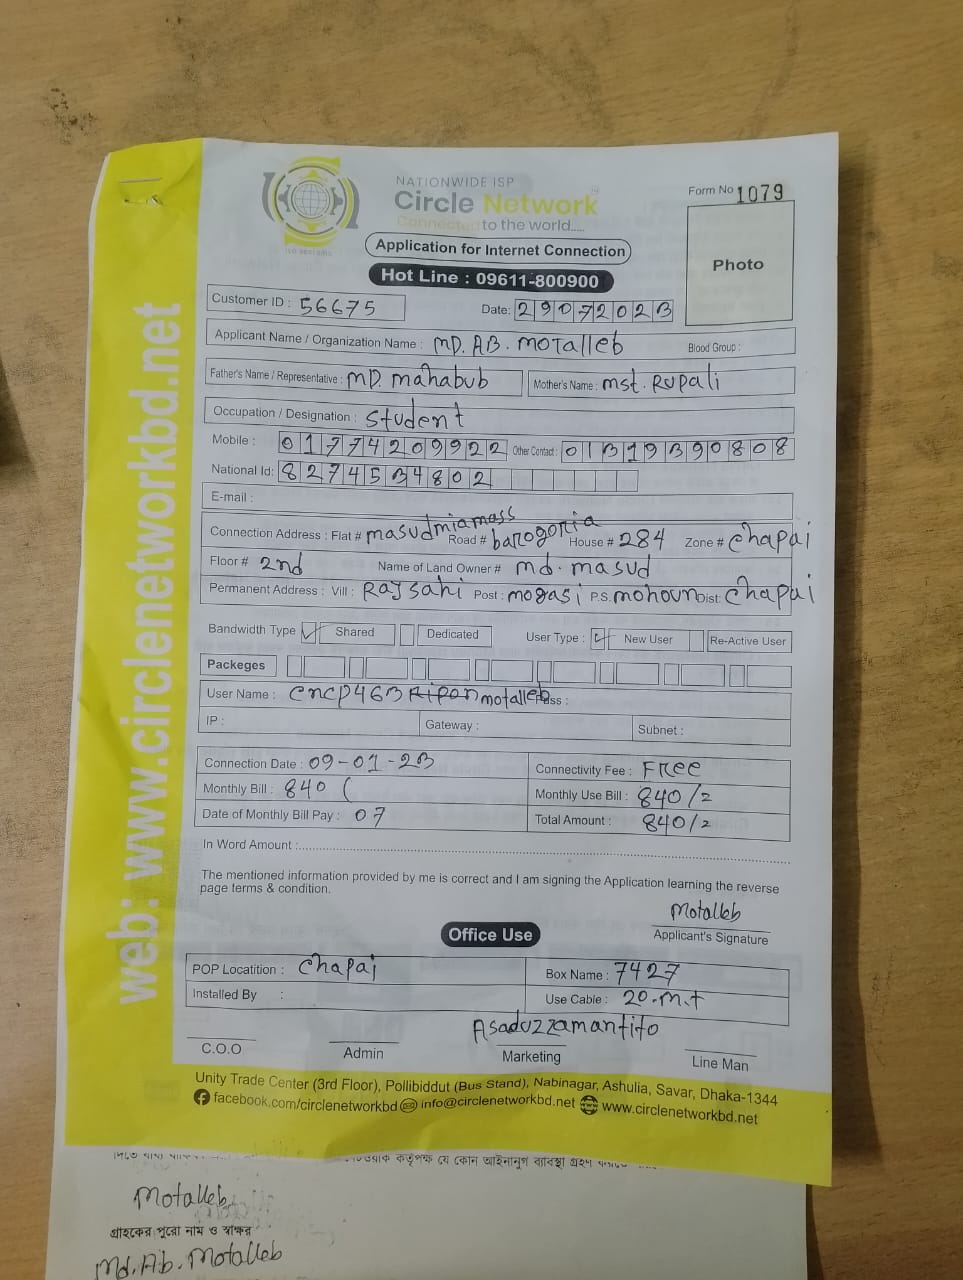 NATIONWIDE ISP
Circle Network
Connected to the world.....
Form No 1079
Application for Internet Connection
Hot Line : 09611-800900
Photo
Customer ID : 56675 Date: 29072023
Applicant Name / Organization Name : MD. AB. MOTAlleb Blood Group :
Father's Name / Representative : MD. mahabub Mother's Name : mst. Rupali
Occupation / Designation : Student
Mobile : 01774209922 Other Contact : 01319390808
National Id: 8274534802
E-mail :
Connection Address : Flat # masudmiamass Road # barogoria House # 284 Zone # chapai
Floor # 2nd Name of Land Owner # md. masud
Permanent Address : Vill : Rajsahi Post : mogasi P.S. mohoun Dist: chapai
Bandwidth Type Shared Dedicated User Type : New User Re-Active User
Packeges
User Name : cncp463 motalleb ss :
IP : Gateway : Subnet :
Connection Date : 09-01-23 Connectivity Fee : FREE
Monthly Bill : 840 Monthly Use Bill : 840/2
Date of Monthly Bill Pay : 07 Total Amount : 840/2
In Word Amount :
The mentioned information provided by me is correct and I am signing the Application learning the reverse
page terms & condition.
Motalleb
Applicant's Signature
Office Use
POP Locatition : chapai Box Name : 7427
Installed By : Use Cable : 20.m.t
Asaduzzamantito
C.O.O Admin Marketing Line Man
Unity Trade Center (3rd Floor), Pollibiddut (Bus Stand), Nabinagar, Ashulia, Savar, Dhaka-1344
facebook.com/circlenetworkbd info@circlenetworkbd.net www.circlenetworkbd.net
web: www.circlenetworkbd.net
কর্তৃপক্ষ যে কোন আইনানুগ ব্যবস্থা গ্রহণ
Motalleb
গ্রাহকের পুরো নাম ও স্বাক্ষর
Md. Ab. Motalleb